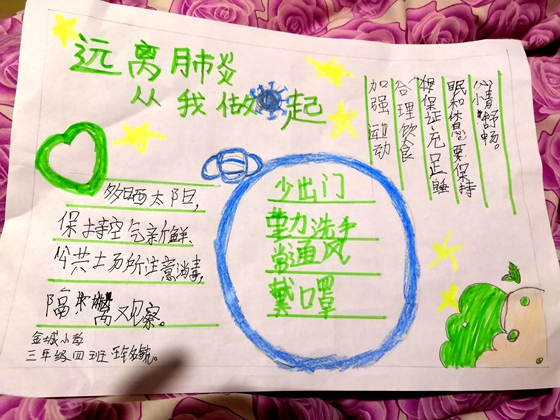 远离肺炎
从我做起
加强运动
合理饮食
保证充足睡
眠和休息要保持
心情舒畅。
多晒太阳,
保持空气新鲜、
公共土场所注意消毒,
隔离观察。
少出门
勤洗手
常通风
戴口罩
金城小学
三年级四班